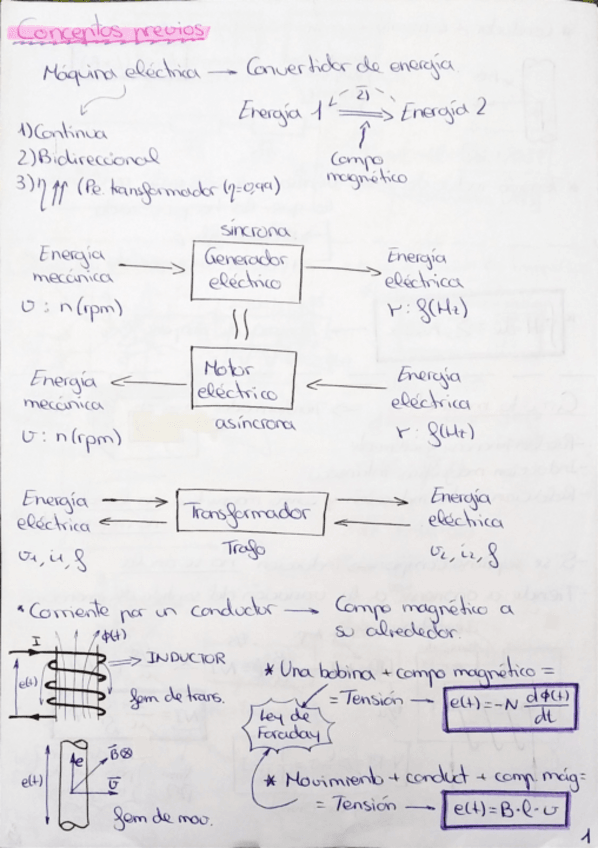 Conceptos previos
Máquina eléctrica → Convertidor de energía
2)
Energía 1 ⇒ Energía 2
Campo
magnético
1) Continua
2) Bidireccional
3) η ↑↑ (Pe. transformador (η=0,99)
síncrona
Energía
mecánica
Generador
eléctrico
Energía
eléctrica
v : n (rpm)
r : f(Hz)
Energía
mecánica
Motor
eléctrico
Energía
eléctrica
asíncrona
v : n (rpm)
r : f(Hz)
Energía
eléctrica
Transformador
Energía
eléctrica
Trafo
v1, i1, f
v2, i2, f
* Corriente por un conductor → Campo magnético a
su alrededor.
I
ϕ(t)
e(t)
⇒ INDUCTOR
fem de trans.
* Una bobina + campo magnético =
= Tensión → e(t) = -N dϕ(t)/dt
Ley de
Faraday
* Movimiento + conduct + camp. mág =
= Tensión → e(t) = B·l·v
e(t)
e
B⊗
v
fem de mov.
1